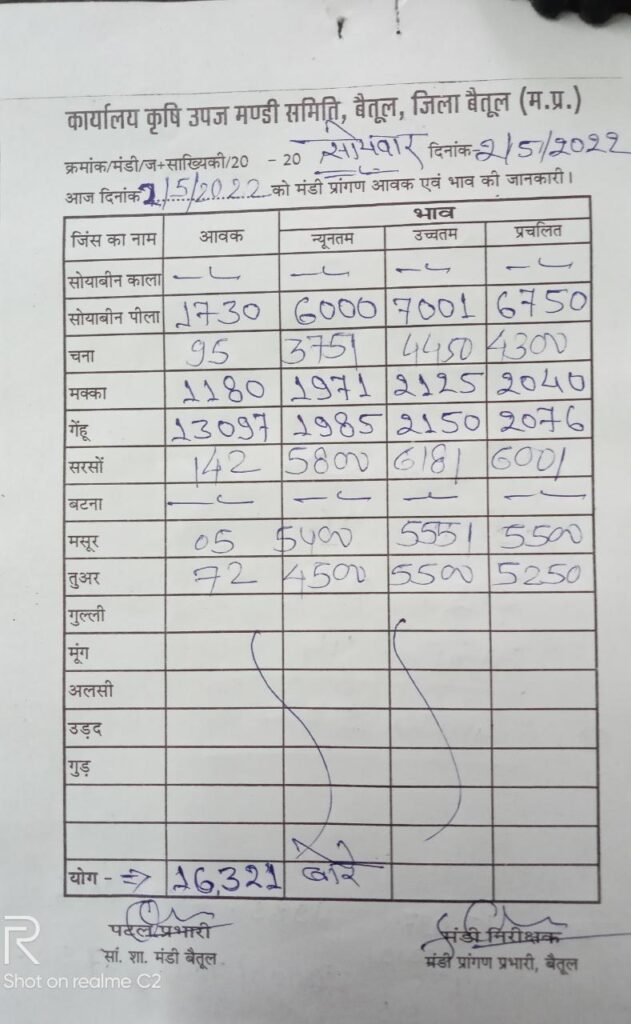 कार्यालय कृषि उपज मण्डी समिति, बैतूल, जिला बैतूल (म.प्र.)
क्रमांक/मंडी/ज+सांख्यिकी/20 - 20 सोमवार दिनांक 2/5/2022
आज दिनांक 2/5/2022 को मंडी प्रांगण आवक एवं भाव की जानकारी।
जिंस का नाम आवक भाव
न्यूनतम उच्चतम प्रचलित
सोयाबीन काला — — — —
सोयाबीन पीला 1730 6000 7001 6750
चना 95 3751 4450 4300
मक्का 1180 1971 2125 2040
गेंहू 13097 1985 2150 2076
सरसों 142 5800 6181 6001
बटना — — — —
मसूर 05 5400 5551 5500
तुअर 72 4500 5500 5250
गुल्ली
मूंग
अलसी
उड़द
गुड़
योग - => 16,321 बोरे
पटल प्रभारी मंडी निरीक्षक
सां. शा. मंडी बैतूल मंडी प्रांगण प्रभारी, बैतूल
R
Shot on realme C2